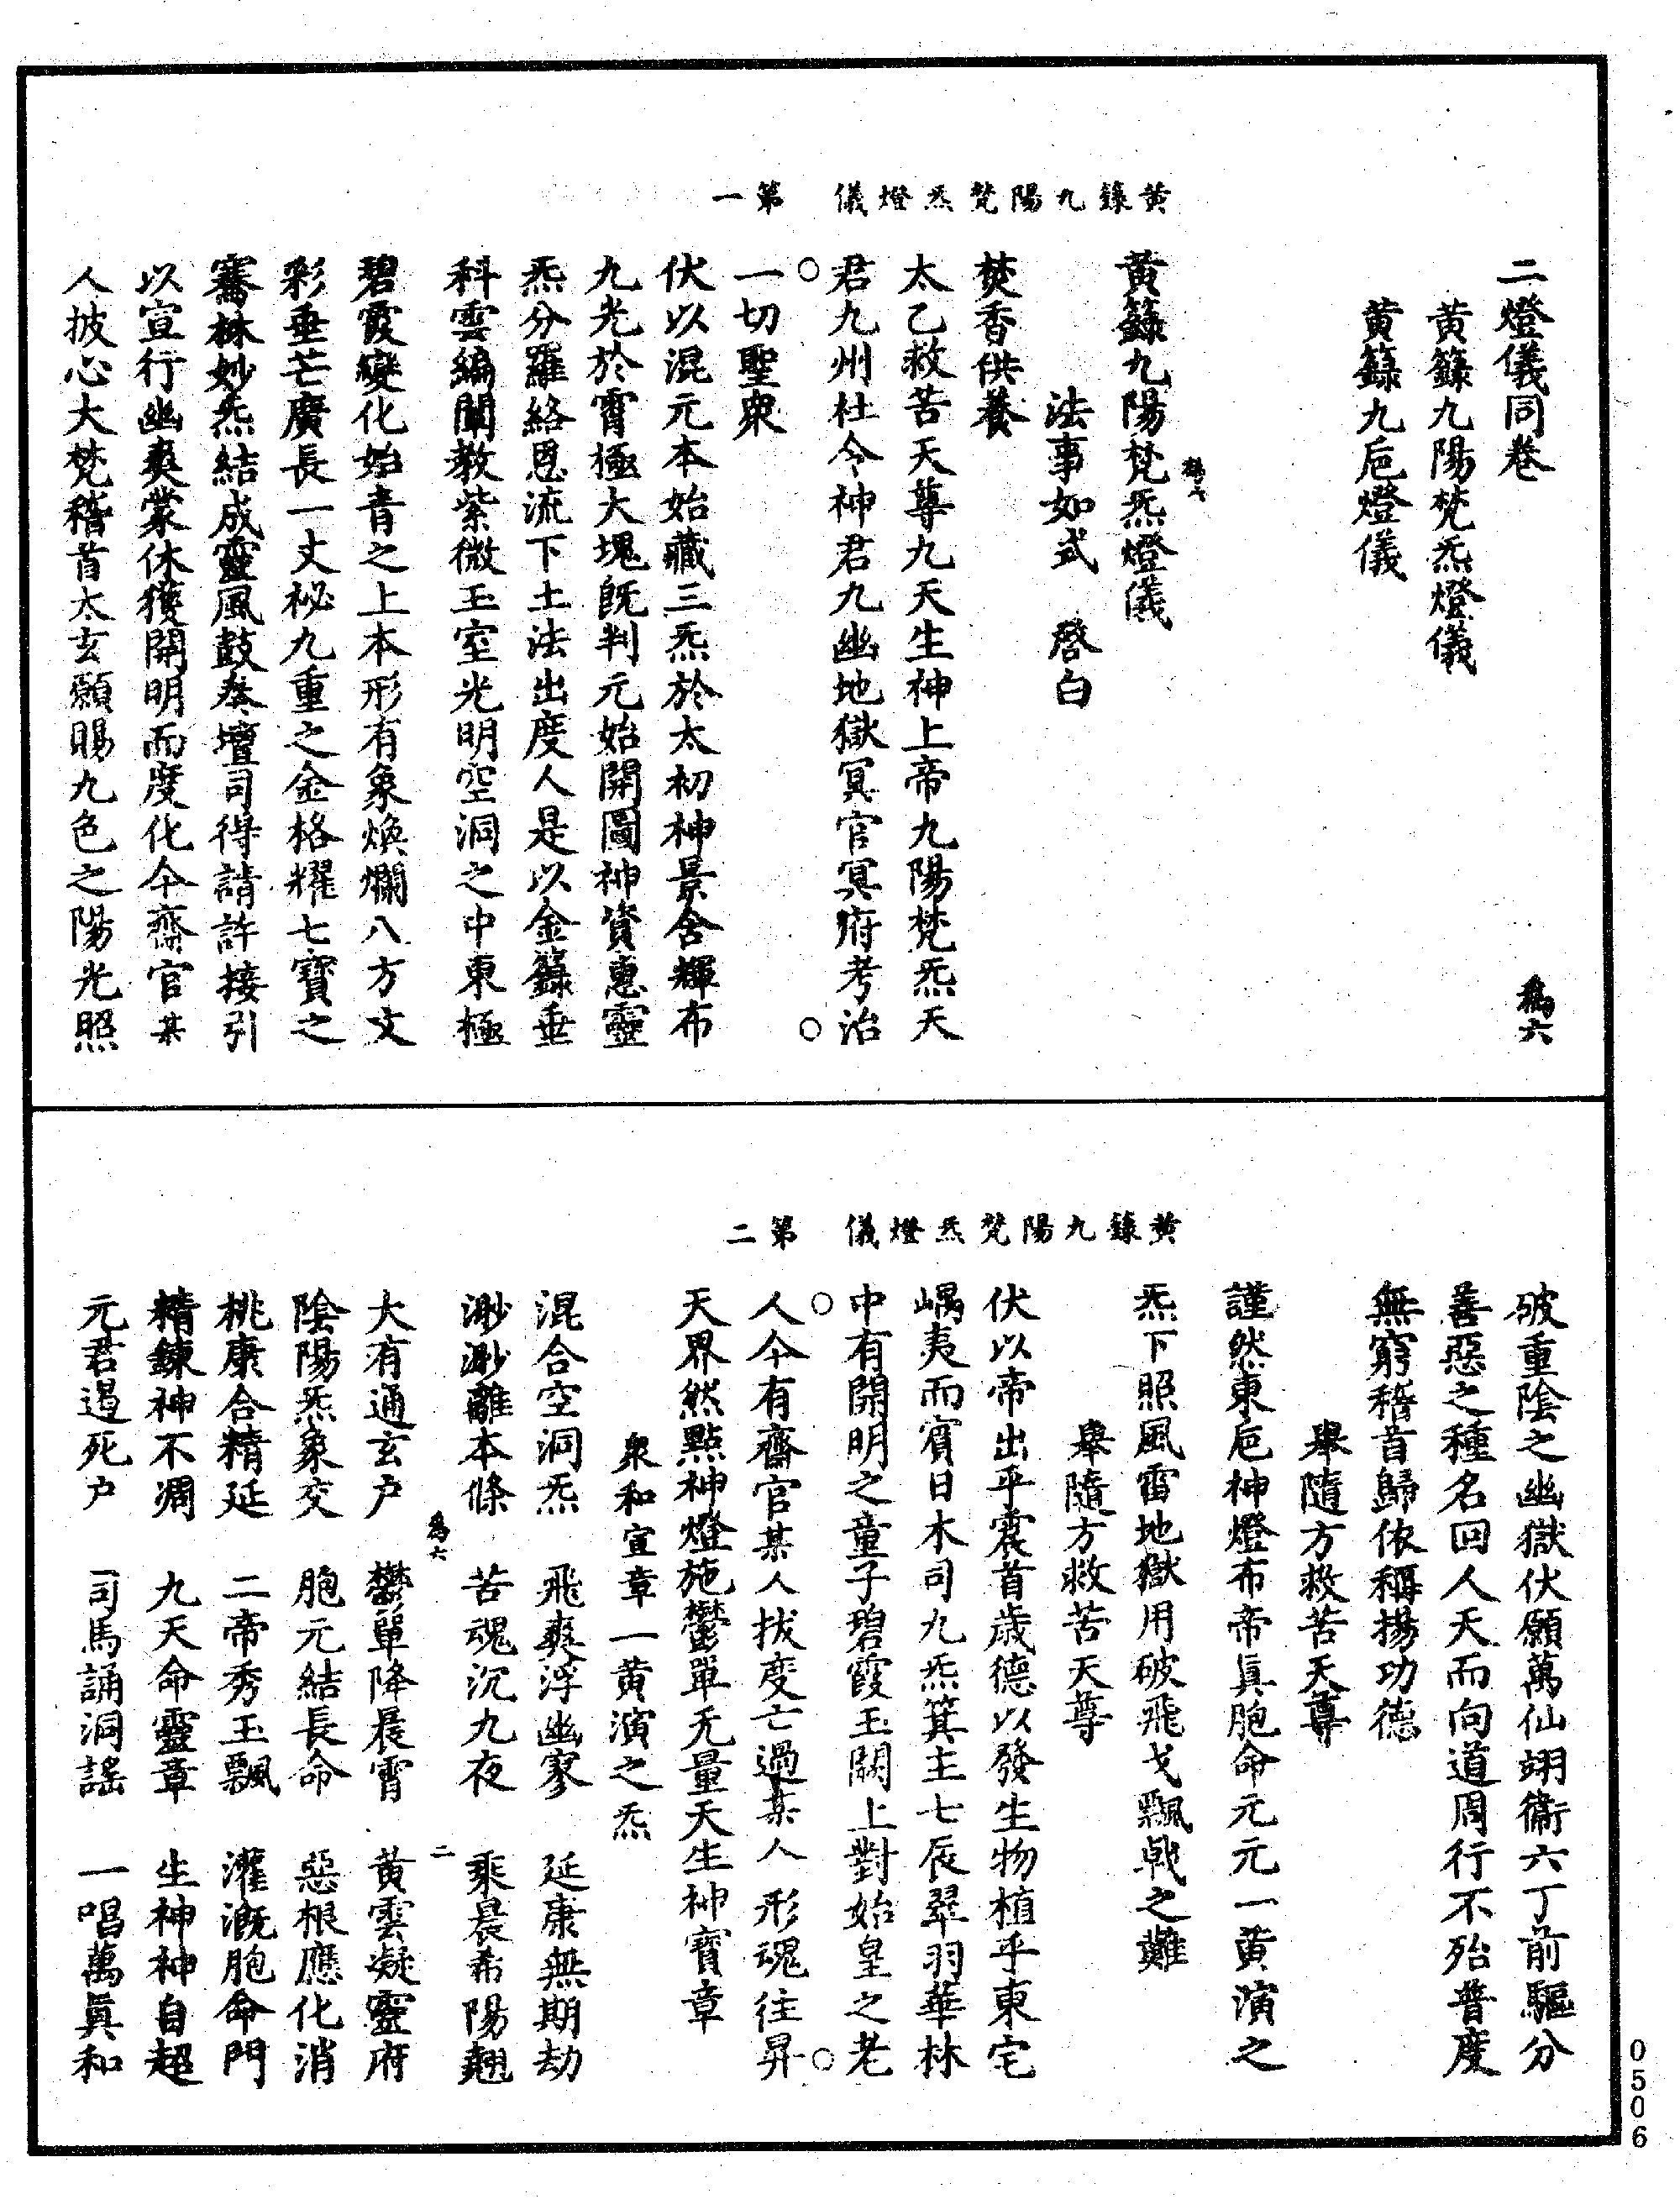 二燈儀同卷　爲六
黃籙九陽梵炁燈儀
黃籙九巵燈儀
黃籙九陽梵炁燈儀　第一
爲六
黃籙九陽梵炁燈儀
法事如式　啓白
焚香供養
太乙救苦天尊九天生神上帝九陽梵炁天
君九州社令神君九幽地獄冥官冥府考治
○　○
一切聖衆
伏以混元本始藏三炁於太初神景舍輝布
九光於霄極大塊旣判元始開圖神資惠靈
炁分羅絡恩流下土法出度人是以金籙垂
科雲編闡教紫微玉室光明空洞之中東極
碧霞變化始青之上本形有象煥爛八方文
彩垂芒廣長一丈祕九重之金格耀七寶之
騫林妙炁結成靈風鼓奏壇司得請許接引
以宣行幽爽蒙休獲開明而度化今齋官某
人披心大梵稽首太玄願賜九色之陽光照
黃籙九陽梵炁燈儀　第二
破重陰之幽獄伏願萬仙翊衞六丁前驅分
善惡之種名回人天而向道周行不殆普度
無窮稽首歸依稱揚功德
舉隨方救苦天尊
謹然東巵神燈布帝眞胞命元元一黃演之
炁下照風雷地獄用破飛戈飄戟之難
舉隨方救苦天尊
伏以帝出乎震首歲德以發生物植乎東宅
嵎夷而賓日木司九炁箕主七辰翠羽華林
中有開明之童子碧霞玉闕上對始皇之老
○　○
人今有齋官某人拔度亡過某人形魂往昇
天界然點神燈施鬱單无量天生神寶章
衆和宣章一黃演之炁
混合空洞炁　飛爽浮幽寥　延康無期劫
渺渺離本條　苦魂沉九夜　乘晨希陽翹
爲六　二
大有通玄戶　鬱單降晨霄　黃雲凝靈府
陰陽炁象交　胞元結長命　惡根應化消
桃康合精延　二帝秀玉飄　灌溉胞命門
精鍊神不凋　九天命靈章　生神神自超
元君遏死戶　司馬誦洞謠　一唱萬眞和
0506